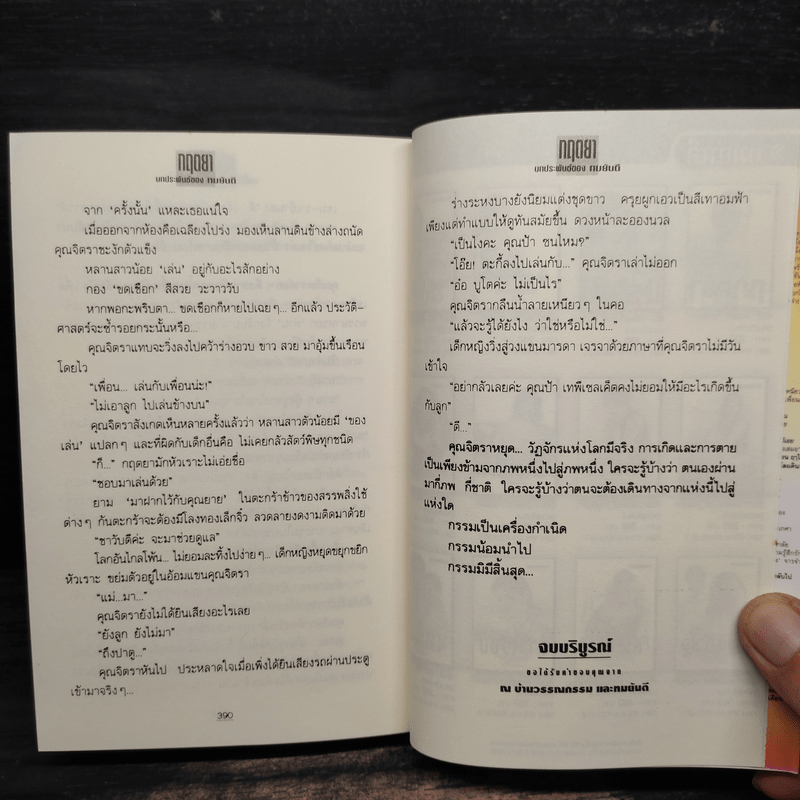 กฤตยา
บทประพันธ์ของ ทมยันตี
จาก ‘ครั้งนั้น’ แหละเธอแน่ใจ
เมื่อออกจากห้องคือเฉลียงโปร่ง มองเห็นลานดินข้างล่างถนัด
คุณจิตราชะงักตัวแข็ง
หลานสาวน้อย ‘เล่น’ อยู่กับอะไรสักอย่าง
กอง ‘ขดเชือก’ สีสวย วะวาววับ
หากพอกะพริบตา... ขดเชือกก็หายไปเฉยๆ... อีกแล้ว ประวัติ-
ศาสตร์จะซ้ำรอยกระนั้นหรือ...
คุณจิตราแทบจะวิ่งลงไปคว้าร่างอวบ ขาว สวย มาอุ้มขึ้นเรือน
โดยไว
“เพื่อน... เล่นกับเพื่อนน่ะ!”
“ไม่เอาลูก ไปเล่นข้างบน”
คุณจิตราสังเกตเห็นหลายครั้งแล้วว่า หลานสาวตัวน้อยมี ‘ของ
เล่น’ แปลกๆ และที่ผิดกับเด็กอื่นคือ ไม่เคยกลัวสัตว์พิษทุกชนิด
“ก็...” กฤตยามักหัวเราะไม่เอ่ยชื่อ
“ชอบมาเล่นด้วย”
ยาม ‘มาฝากไว้กับคุณยาย’ ในตะกร้าข้าวของสรรพสิ่งใช้
ต่างๆ กันตะกร้าจะต้องมีโลงทองเล็กจิ๋ว ลวดลายงดงามติดมาด้วย
“ซาวันดีค่ะ จะมาช่วยดูแล”
โลกอันไกลโพ้น... ไม่ยอมละทิ้งไปง่ายๆ... เด็กหญิงหยุดขยุกขยิก
หัวเราะ ขย่มตัวอยู่ในอ้อมแขนคุณจิตรา
“แม่...มา...”
คุณจิตรายังไม่ได้ยินเสียงอะไรเลย
“ยังลูก ยังไม่มา”
“ถึงปาตู...”
คุณจิตราหันไป ประหลาดใจเมื่อเพิ่งได้ยินเสียงรถผ่านประตู
เข้ามาจริงๆ...
390
กฤตยา
บทประพันธ์ของ ทมยันตี
ร่างระหงบางยังนิยมแต่งชุดขาว ครุยผูกเอวเป็นสีเทาอมฟ้า
เพียงแต่ทำแบบให้ดูทันสมัยขึ้น ดวงหน้าละอองนวล
“เป็นไงคะ คุณป้า ซนไหม?”
“โอ๊ย! ตะกี้ลงไปเล่นกับ...” คุณจิตราเล่าไม่ออก
“อ๋อ บูโตค่ะ ไม่เป็นไร”
คุณจิตรากลืนน้ำลายเหนียวๆ ในคอ
“แล้วจะรู้ได้ยังไง ว่าใช่หรือไม่ใช่...”
เด็กหญิงวิ่งสู่วงแขนมารดา เจรจาด้วยภาษาที่คุณจิตราไม่มีวัน
เข้าใจ
“อย่ากลัวเลยค่ะ คุณป้า เทพีเซลเค็ตคงไม่ยอมให้มีอะไรเกิดขึ้น
กับลูก”
“ดี...”
คุณจิตราหยุด... วัฏจักรแห่งโลกมีจริง การเกิดและการตาย
เป็นเพียงข้ามจากภพหนึ่งไปสู่ภพหนึ่ง ใครจะรู้บ้างว่า ตนเองผ่าน
มากี่ภพ กี่ชาติ ใครจะรู้บ้างว่าตนจะต้องเดินทางจากแห่งนี้ไปสู่
แห่งใด
กรรมเป็นเครื่องกำเนิด
กรรมน้อมนำไป
กรรมมิมีสิ้นสุด...
จบบริบูรณ์
ขอได้รับคำขอบคุณจาก
ณ บ้านวรรณกรรม และทมยันตี